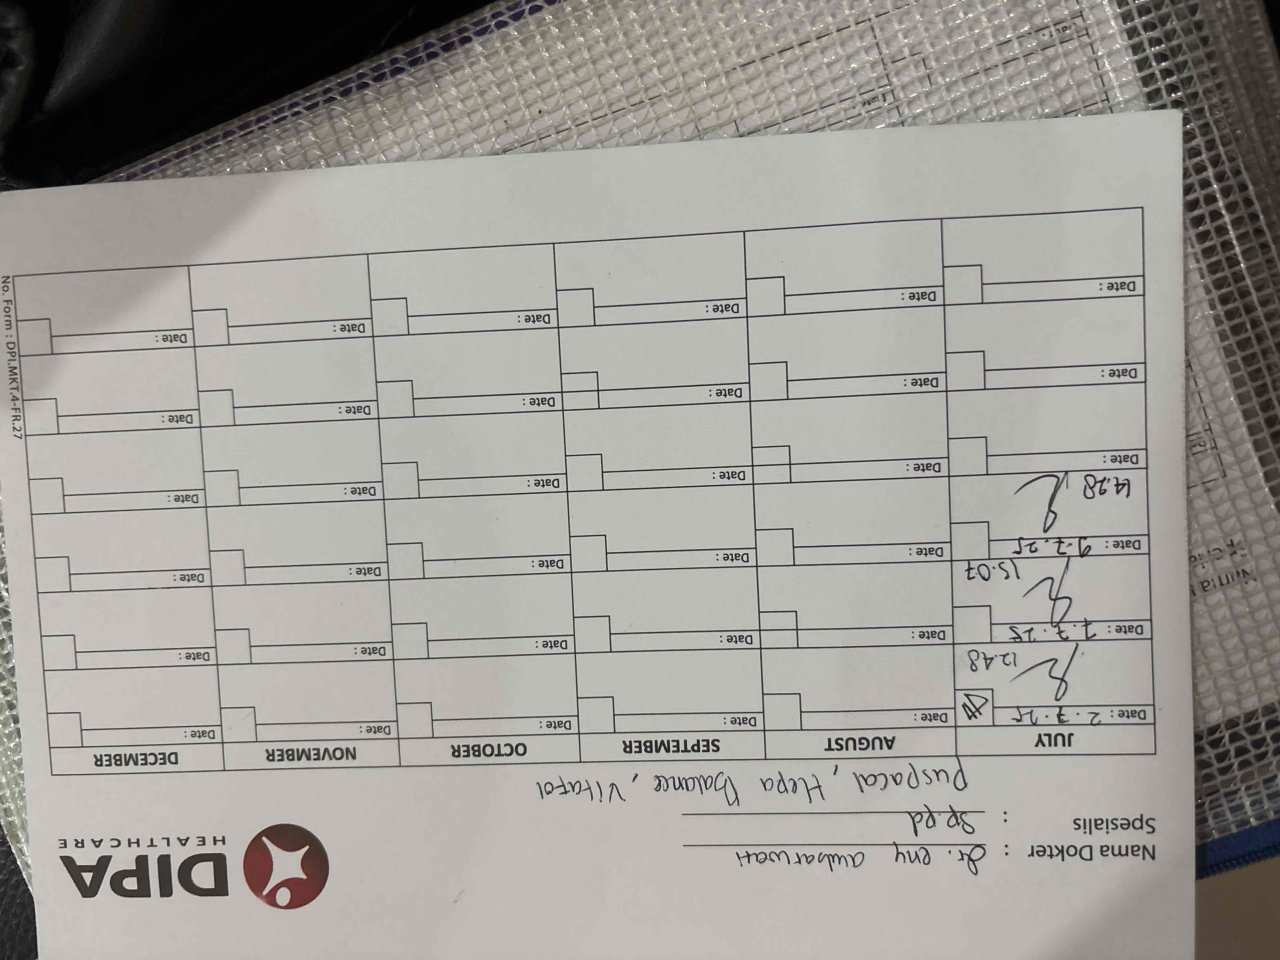 DIPA
HEALTHCARE
Nama Dokter : dr. eny ambarwati
Spesialis : Sp.pd
Puspacal, Hepa Balance, Vitafol
JULY AUGUST SEPTEMBER OCTOBER NOVEMBER DECEMBER
Date : 2.7.25 Date : Date : Date : Date : Date :
12.48
Date : 7.7.25 Date : Date : Date : Date : Date :
15.07
Date : 9.7.25 Date : Date : Date : Date : Date :
14.28
Date : Date : Date : Date : Date : Date :
Date : Date : Date : Date : Date : Date :
Date : Date : Date : Date : Date : Date :
No. Form : DPI.MKT.4-FR.27